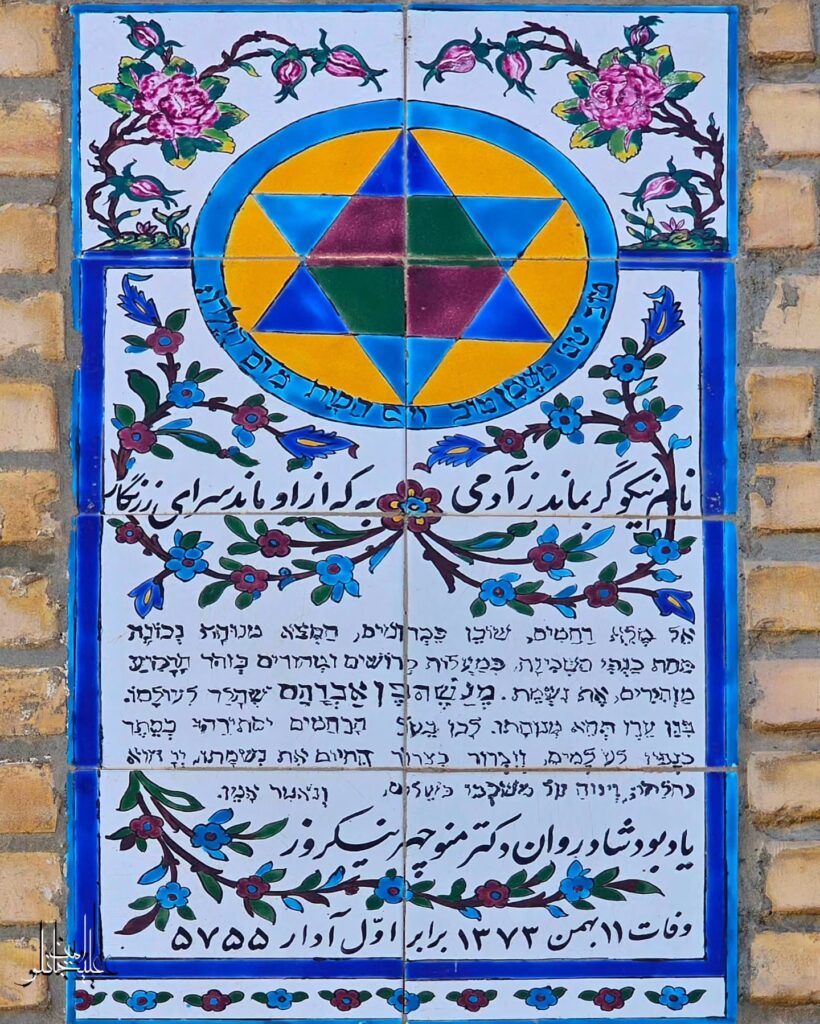 טוב שם משמן טוב ויום המות מיום
نام نیکو گر بماند ز آدمی به که از او ماند سرای زرنگار
אל מלא רחמים, שוכן במרומים, המצא מנוחה נכונה
תחת כנפי השכינה, במעלות קדושים וטהורים כזוהר הרקיע
מזהירים, את נשמת. מנשה בן אברהם שהלך לעולמו.
בגן עדן תהא מנוחתו. לכן בעל הרחמים יסתירהו בסתר
כנפיו לעולמים, ויצרור בצרור החיים את נשמתו, הוא
נחלתו, וינוח על משכבו בשלום, ונאמר אמן.
یادبود شادروان دکتر منوچهر نیکروز
وفات ۱۱ بهمن ۱۳۷۳ برابر اوّل آدار ۵۷۵۵